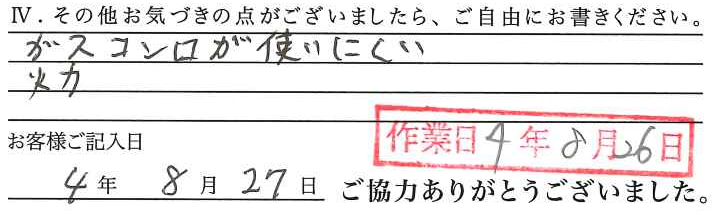 Ⅳ．その他お気づきの点がございましたら、ご自由にお書きください。
ガスコンロが使いにくい
火力
作業日4年8月26日
お客様ご記入日
4年 8月 27日 ご協力ありがとうございました。